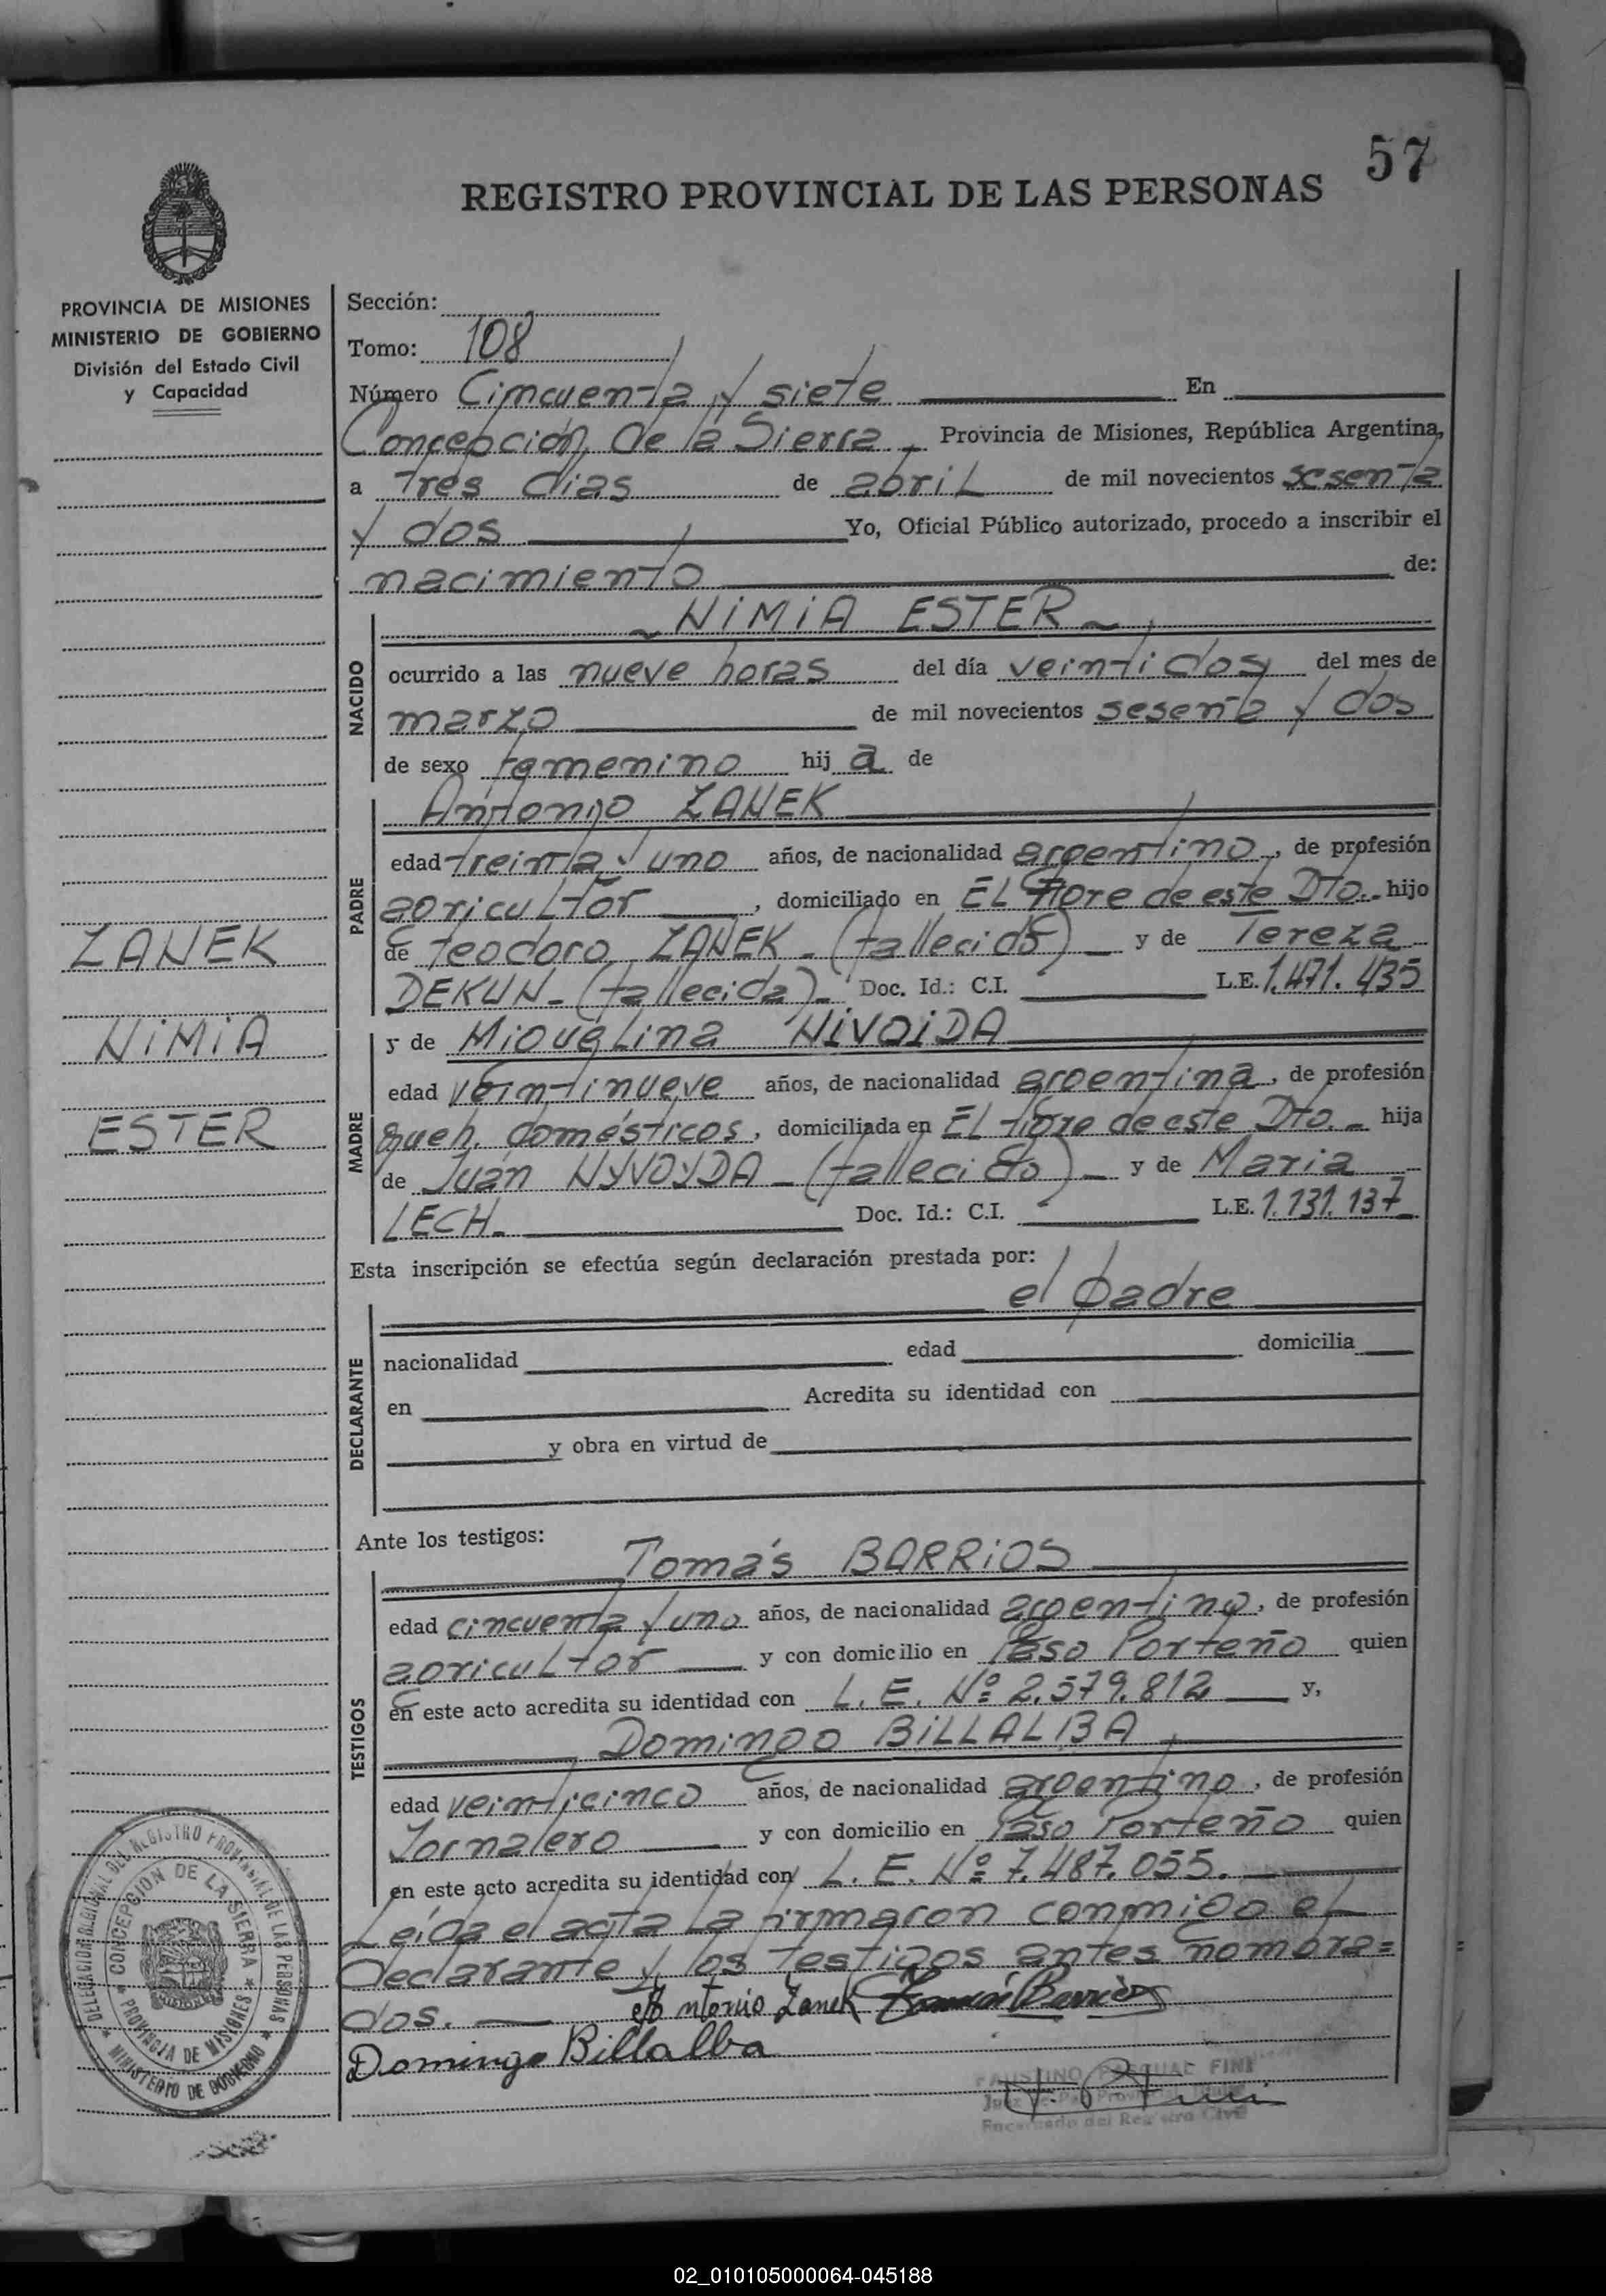 57
REGISTRO PROVINCIAL DE LAS PERSONAS
PROVINCIA DE MISIONES
MINISTERIO DE GOBIERNO
División del Estado Civil
y Capacidad
ZANEK
NIMIA
ESTER
Sección:
Tomo: 108
Número Cincuenta y siete En
Concepción de la Sierra Provincia de Misiones, República Argentina,
a tres días de abril de mil novecientos sesenta
y dos Yo, Oficial Público autorizado, procedo a inscribir el
nacimiento de:
NIMIA ESTER
NACIDO
ocurrido a las nueve horas del día veintidos del mes de
marzo de mil novecientos sesenta y dos
de sexo femenino hij a de
PADRE
Antonio ZANEK
edad treinta y uno años, de nacionalidad argentino, de profesión
agricultor, domiciliado en El Tigre de este Dto. hijo
de teodoro ZANEK - (fallecido) y de Tereza
DEKUN - (fallecida) - Doc. Id.: C.I. L.E. 1.471.435
MADRE
y de Miguelina NIVOIDA
edad veintinueve años, de nacionalidad argentina, de profesión
queh. domésticos, domiciliada en El tigre de este Dto. - hija
de Juan NYVOYDA - (fallecido) - y de Maria
LECH. Doc. Id.: C.I. L.E. 1.131.137
Esta inscripción se efectúa según declaración prestada por:
el padre
DECLARANTE
nacionalidad edad domicilia
en Acredita su identidad con
y obra en virtud de
Ante los testigos:
TESTIGOS
Tomás BARRIOS
edad cincuenta y uno años, de nacionalidad argentino, de profesión
agricultor y con domicilio en Paso Porteño quien
en este acto acredita su identidad con L. E. Nº 2.579.812 y,
Domingo BILLALBA
edad veinticinco años, de nacionalidad argentino, de profesión
Jornalero y con domicilio en Paso Porteño quien
en este acto acredita su identidad con L. E. Nº 7.487.055.
Leída el acta la firmaron conmigo el
declarante y los testigos antes nombra=
dos. Antonio Zanek Tomás Barrios
Domingo Billalba
FAUSTINO PASCUAL FINI
Encargado del Registro Civil
DELEGACION REGIONAL DEL REGISTRO PROVINCIAL DE LAS PERSONAS
MINISTERIO DE GOBIERNO
CONCEPCION DE LA SIERRA
PROVINCIA DE MISIONES
02_010105000064-045188